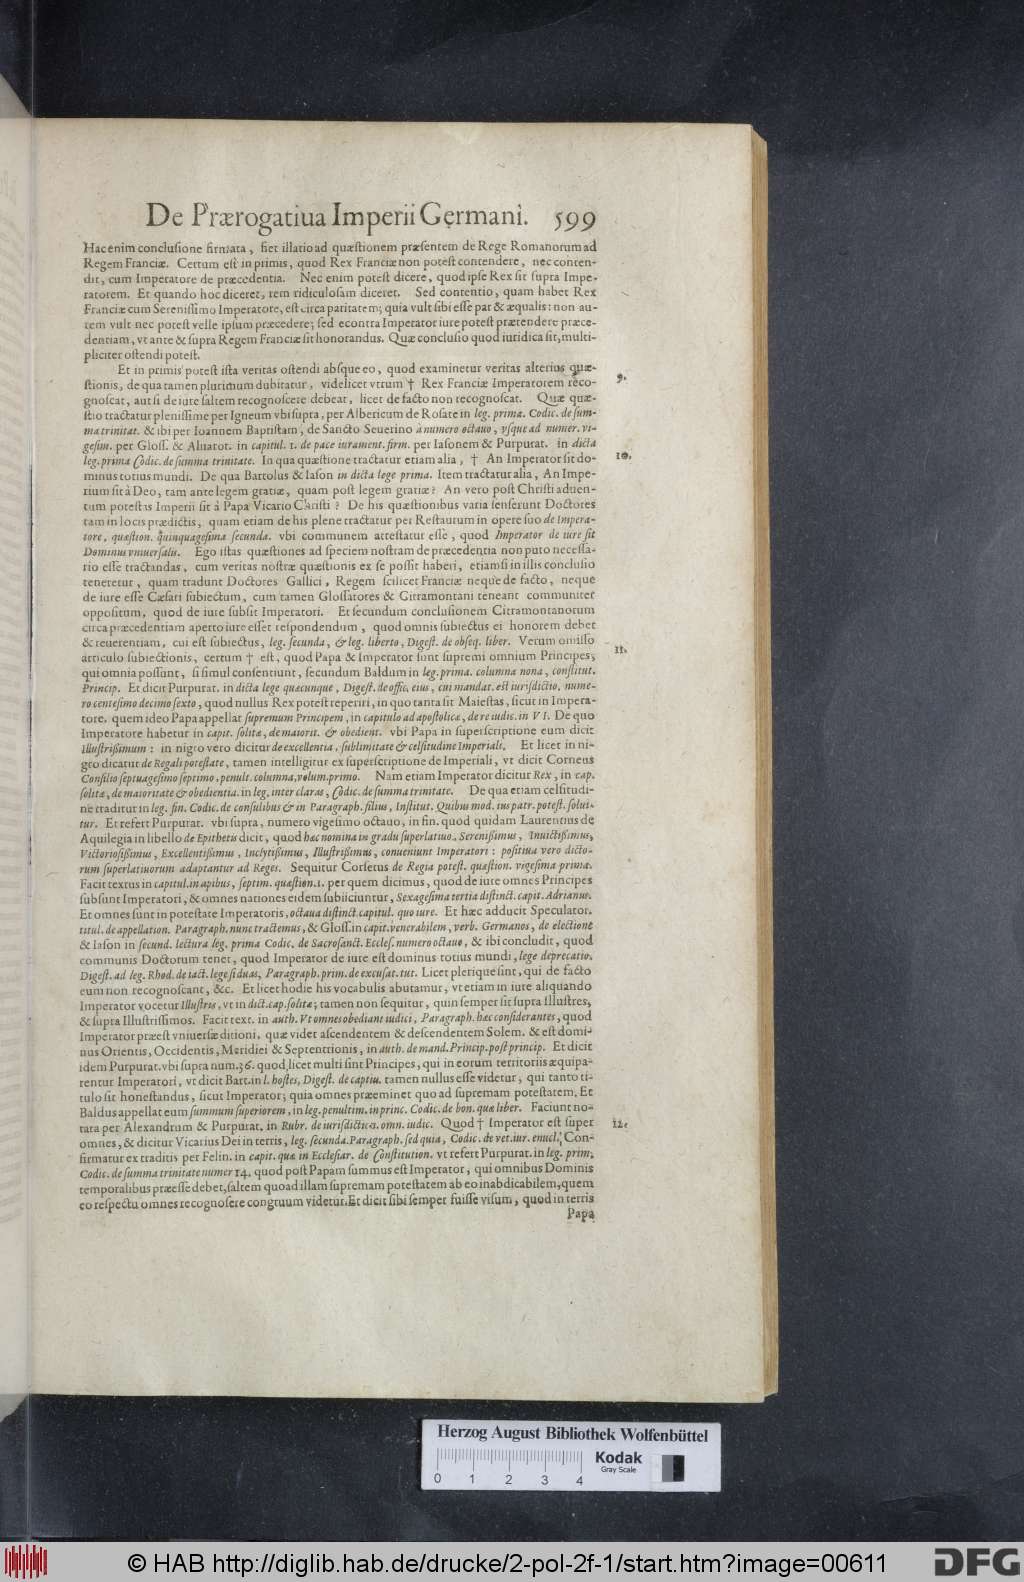 De Prærogatiua Imperii Germani. 599
Hac enim conclusione firmata, fiet illatio ad quæstionem præsentem de Rege Romanorum ad
Regem Franciæ. Certum est in primis, quod Rex Franciæ non potest contendere, nec conten-
dit, cum Imperatore de præcedentia. Nec enim potest dicere, quod ipse Rex sit supra Impe-
ratorem. Et quando hoc diceret, rem ridiculosam diceret. Sed contentio, quam habet Rex
Franciæ cum Serenissimo Imperatore, est circa paritatem; quia vult sibi esse par & æqualis: non au-
tem vult nec potest velle ipsum præcedere; sed econtra Imperator iure potest prætendere præce-
dentiam, vt ante & supra Regem Franciæ sit honorandus. Quæ conclusio quod iuridica sit, multi-
pliciter ostendi potest.
Et in primis potest ista veritas ostendi absque eo, quod examinetur veritas alterius quæ-
stionis, de qua tamen plurimum dubitatur, videlicet vtrum † Rex Franciæ Imperatorem reco-
9.
gnoscat, aut si de iure saltem recognoscere debeat, licet de facto non recognoscat. Quæ quæ-
stio tractatur plenissime per Igneum vbi supra, per Albericum de Rosate in leg. prima. Codic. de sum-
ma trinitat. & ibi per Ioannem Baptistam, de Sancto Seuerino à numero octauo, vsque ad numer. vi-
gesim. per Gloss. & Aluarot. in capitul. 1. de pace iurament. firm. per Iasonem & Purpurat. in dicta
leg. prima Codic. de summa trinitate. In qua quæstione tractatur etiam alia, † An Imperator sit do-
10.
minus totius mundi. De qua Bartolus & Iason in dicta lege prima. Item tractatur alia, An Impe-
rium sit à Deo, tam ante legem gratiæ, quam post legem gratiæ? An vero post Christi aduen-
tum potestas Imperii sit à Papa Vicario Christi? De his quæstionibus varia senserunt Doctores
tam in locis prædictis, quam etiam de his plene tractatur per Restaurum in opere suo de Impera-
tore, quæstion. quinquagesima secunda. vbi communem attestatur esse, quod Imperator de iure sit
Dominus vniuersalis. Ego istas quæstiones ad speciem nostram de præcedentia non puto necessa-
rio esse tractandas, cum veritas nostræ quæstionis ex se possit haberi, etiamsi in illis conclusio
teneretur, quam tradunt Doctores Gallici, Regem scilicet Franciæ neque de facto, neque
de iure esse Cæsari subiectum, cum tamen Glossatores & Citramontani teneant communiter
oppositum, quod de iure subsit Imperatori. Et secundum conclusionem Citramontanorum
circa præcedentiam aperto iure esset respondendum, quod omnis subiectus ei honorem debet
& reuerentiam, cui est subiectus, leg. secunda, & leg. liberto, Digest. de obseq. liber. Verum omisso
articulo subiectionis, certum † est, quod Papa & Imperator sunt supremi omnium Principes,
11.
qui omnia possunt, si simul consentiunt, secundum Baldum in leg. prima. columna nona, constitut.
Princip. Et dicit Purpurat. in dicta lege quæcunque, Digest. de offic. eius, cui mandat. est iurisdictio. nume-
ro centesimo decimo sexto, quod nullus Rex potest reperiri, in quo tanta sit Maiestas, sicut in Impera-
tore. quem ideo Papa appellat supremum Principem, in capitulo ad apostolicæ, de re iudic. in VI. De quo
Imperatore habetur in capit. solitæ, de maiorit. & obedient. vbi Papa in superscriptione eum dicit
Illustrißimum: in nigro vero dicitur de excellentia, sublimitate & celsitudine Imperiali. Et licet in ni-
gro dicatur de Regali potestate, tamen intelligitur ex superscriptione de Imperiali, vt dicit Corneus
Consilio septuagesimo septimo, penult. columna, volum. primo. Nam etiam Imperator dicitur Rex, in cap.
solitæ, de maioritate & obedientia. in leg. inter claras, Codic. de summa trinitate. De qua etiam celsitudi-
ne traditur in leg. fin. Codic. de consulibus & in Paragraph. filius, Institut. Quibus mod. ius patr. potest. solui-
tur. Et refert Purpurat. vbi supra, numero vigesimo octauo, in fin. quod quidam Laurentius de
Aquilegia in libello de Epithetis dicit, quod hæc nomina in gradu superlatiuo, Serenißimus, Inuictißimus,
Victoriosißimus, Excellentißimus, Inclytißimus, Illustrißimus, conueniunt Imperatori: positiua vero dicto-
rum superlatiuorum adaptantur ad Reges. Sequitur Corsetus de Regia potest. quæstion. vigesima prima.
Facit textus in capitul. in apibus, septim. quæstion. 1. per quem dicimus, quod de iure omnes Principes
subsunt Imperatori, & omnes nationes eidem subiiciuntur, Sexagesima tertia distinct. capit. Adrianus.
Et omnes sunt in potestate Imperatoris, octaua distinct. capitul. quo iure. Et hæc adducit Speculator.
titul. de appellation. Paragraph. nunc tractemus, & Gloss. in capit. venerabilem, verb. Germanos, de electione
& Iason in secund. lectura leg. prima Codic. de Sacrosanct. Eccles. numero octauo, & ibi concludit, quod
communis Doctorum tenet, quod Imperator de iure est dominus totius mundi, lege deprecatio.
Digest. ad leg. Rhod. de iact. lege si duas, Paragraph. prim. de excusat. tut. Licet plerique sint, qui de facto
eum non recognoscant, &c. Et licet hodie his vocabulis abutamur, vt etiam in iure aliquando
Imperator vocetur Illustris, vt in dict. cap. solitæ; tamen non sequitur, quin semper sit supra Illustres,
& supra Illustrissimos. Facit text. in auth. Vt omnes obediant iudici, Paragraph. hæc considerantes, quod
Imperator præest vniuersæ ditioni, quæ videt ascendentem & descendentem Solem. & est domi-
nus Orientis, Occidentis, Meridiei & Septentrionis, in auth. de mand. Princip. post princip. Et dicit
idem Purpurat. vbi supra num. 36. quod, licet multi sint Principes, qui in eorum territoriis æquipa-
rentur Imperatori, vt dicit Bart. in l. hostes, Digest. de captiu. tamen nullus esse videtur, qui tanto ti-
tulo sit honestandus, sicut Imperator; quia omnes præeminet quo ad supremam potestatem. Et
Baldus appellat eum summum superiorem, in leg. penultim. in princ. Codic. de bon. quæ liber. Faciunt no-
tata per Alexandrum & Purpurat. in Rubr. de iurisdictio. omn. iudic. Quod † Imperator est super
12.
omnes, & dicitur Vicarius Dei in terris, leg. secunda. Paragraph. sed quia, Codic. de vet. iur. enucl. Con-
firmatur ex traditis per Felin. in capit. quæ in Ecclesiar. de Constitution. vt refert Purpurat. in leg. prim,
Codic. de summa trinitate numer 14. quod post Papam summus est Imperator, qui omnibus Dominis
temporalibus præesse debet, saltem quoad illam supremam potestatem ab eo inabdicabilem, quem
eo respectu omnes recognoscere congruum videtur. Et dicit sibi semper fuisse visum, quod in terris
Papa
Herzog August Bibliothek Wolfenbüttel
Kodak
Gray Scale
0 1 2 3 4
© HAB http://diglib.hab.de/drucke/2-pol-2f-1/start.htm?image=00611
DFG